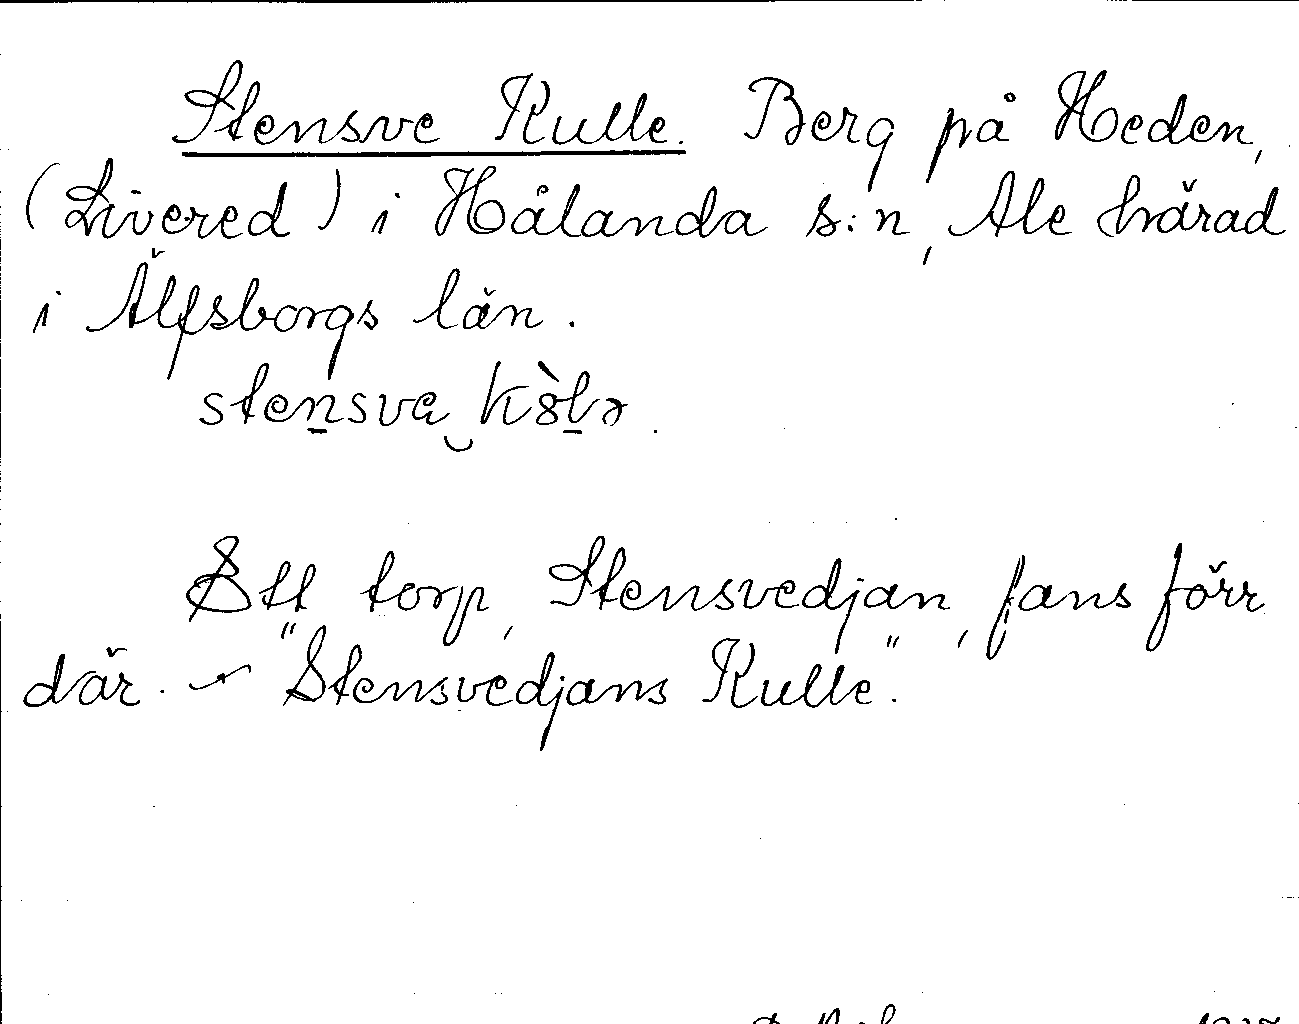 Stensve Kulle. Berg på Heden,
(Livered) i Hålanda s:n, Ale härad
i Älfsborgs län.
stensva‿kòlə.
Ett torp, Stensvedjan, fans förr
där. "Stensvedjans Kulle".